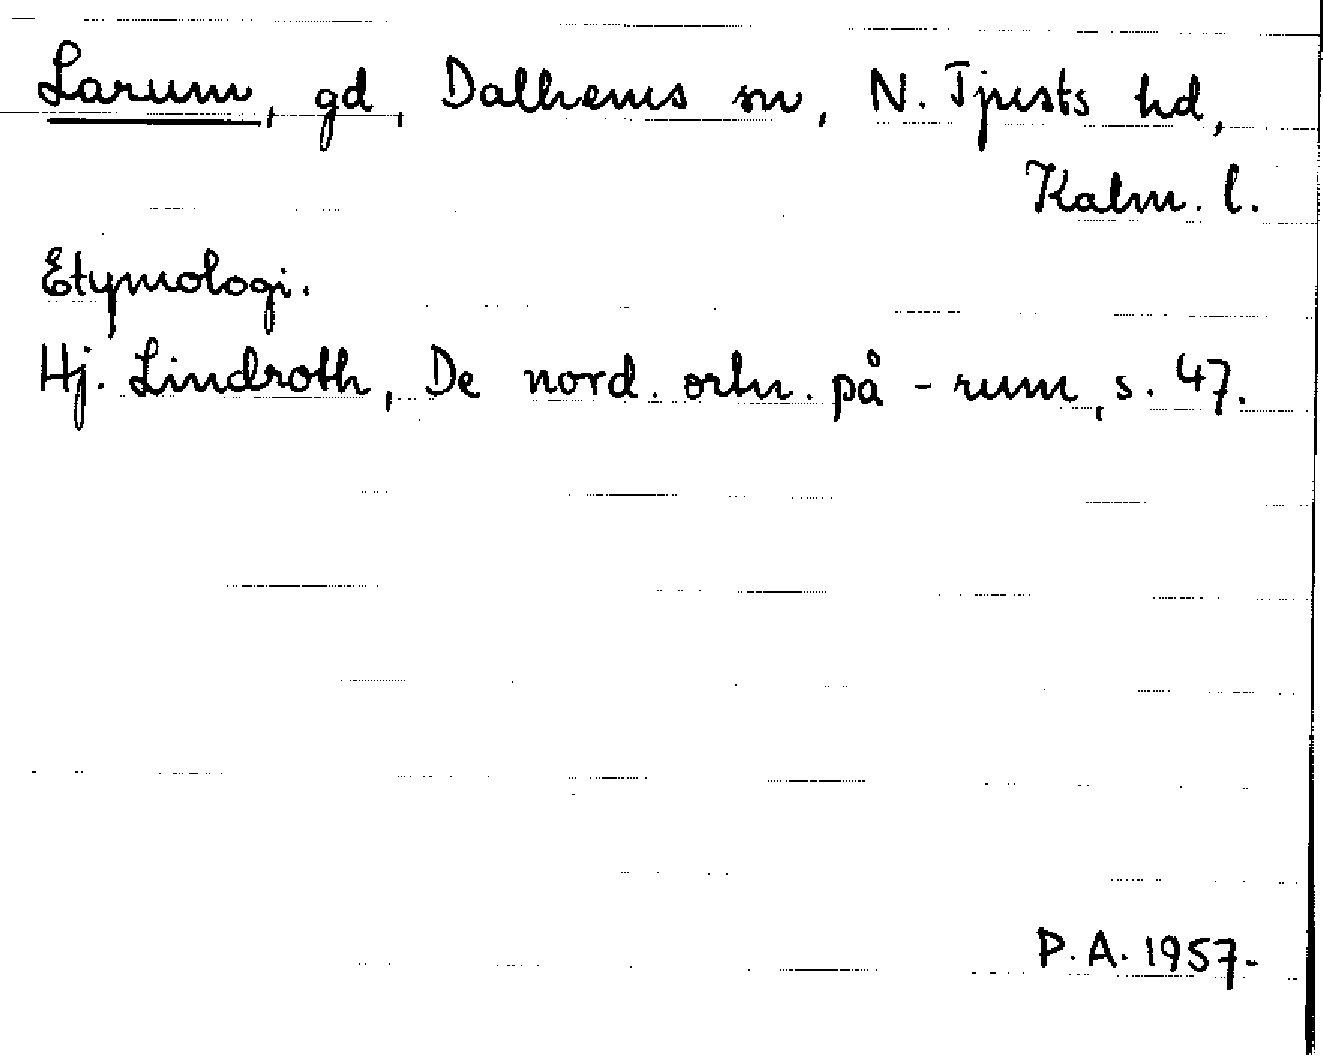 Larum, gd, Dalhems sn, N. Tjusts hd,
Kalm. l.
Etymologi.
Hj. Lindroth, De nord. ortn. på -rum, s. 47.
P. A. 1957.